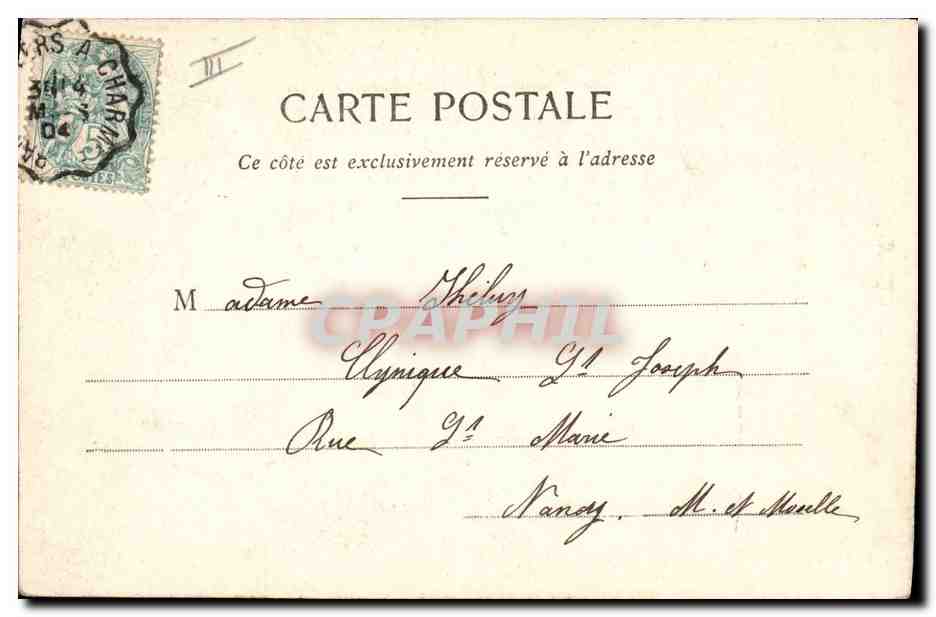 RS A CHARME
04
5
POSTES
III
CARTE POSTALE
Ce côté est exclusivement réservé à l'adresse
Madame
CPAPHIL
Clynique St Joseph
Rue St Marie
Nancy. M. et Moselle